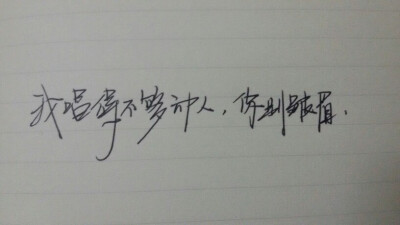 我唱得不够动人,你别皱眉.